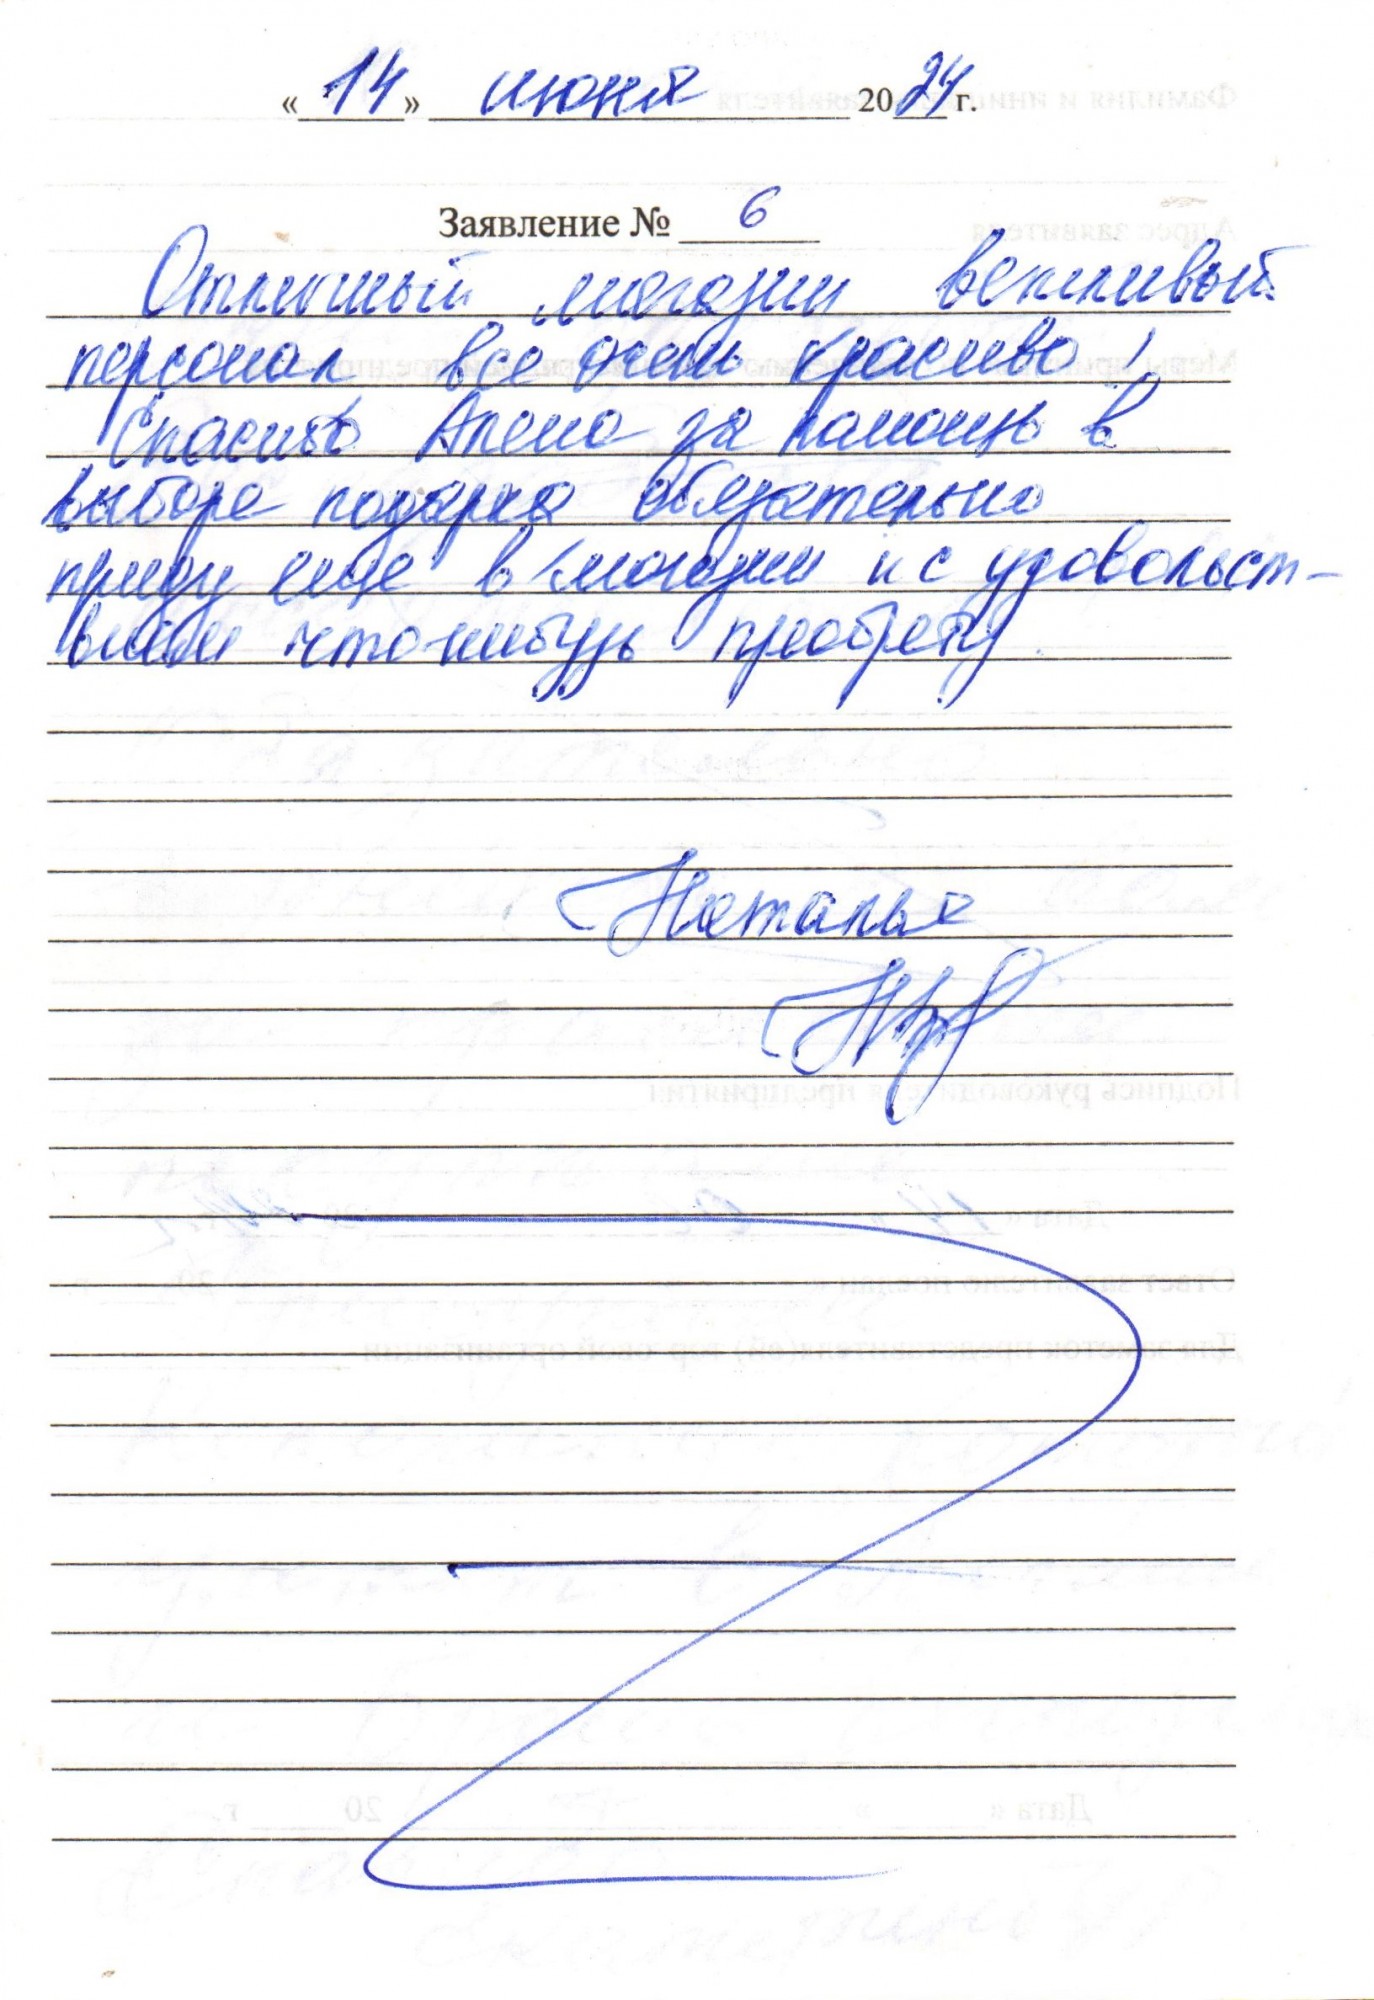 «14» июня 2024 г.
Заявление № 6
Отличный магазин вежливый
персонал все очень красиво!
Спасибо Алена за помощь в
выборе подарка обязательно
приду еще в магазин и с удовольст-
вием что-нибудь преобрету
Наталья